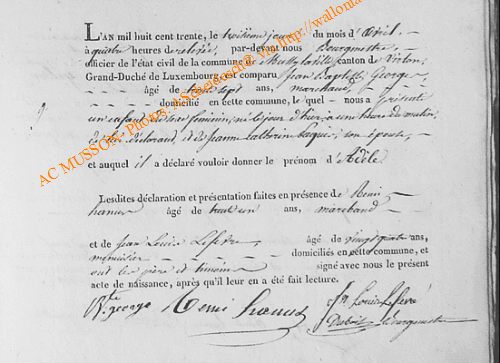 L'AN mil huit cent trente, le troisième jour du mois d'Avril
à quatre heures de relevée, par-devant nous Bourgmestre
officier de l'état civil de la commune de canton de Virton,
Grand-Duché de Luxembourg, est comparu Jean Baptiste George
âgé de trente sept ans, marchand,
domicilié en cette commune, le quel nous a présenté
un enfant du sexe féminin, né le jour d'hier, à une heure du matin,
de lui déclarant, et de Jeanne Catherine son épouse,
et auquel il a déclaré vouloir donner le prénom d'Adèle
Lesdites déclaration et présentation faites en présence de Remi
âgé de trent un ans, marchand
et de Jean Louis Lefevre, âgé de vingt quatre ans,
menuisier domiciliés en cette commune, et
ont les père et témoins signé avec nous le présent
acte de naissance, après qu'il leur en a été fait lecture.
Bte george Remi Jn Louis Lefevre
Bourgmestre
AC MUSSON Photos: http://wallonia